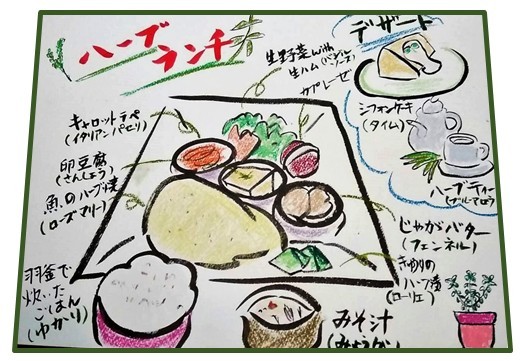 ハーブ
ランチ
デザート
生野菜with
生ハム
カプレーゼ
シフォンケーキ
(タイム)
ハーブティー
(ブルーマロウ)
キャロットラペ
(イタリアンパセリ)
卵豆腐
(さんしょう)
魚のハーブ焼
(ローズマリー)
じゃがバター
(フェンネル)
きゅうりの
ハーブ漬
(ローリエ)
羽釜で
炊いた
ごはん
(ゆかり)
みそ汁
(みょうが)